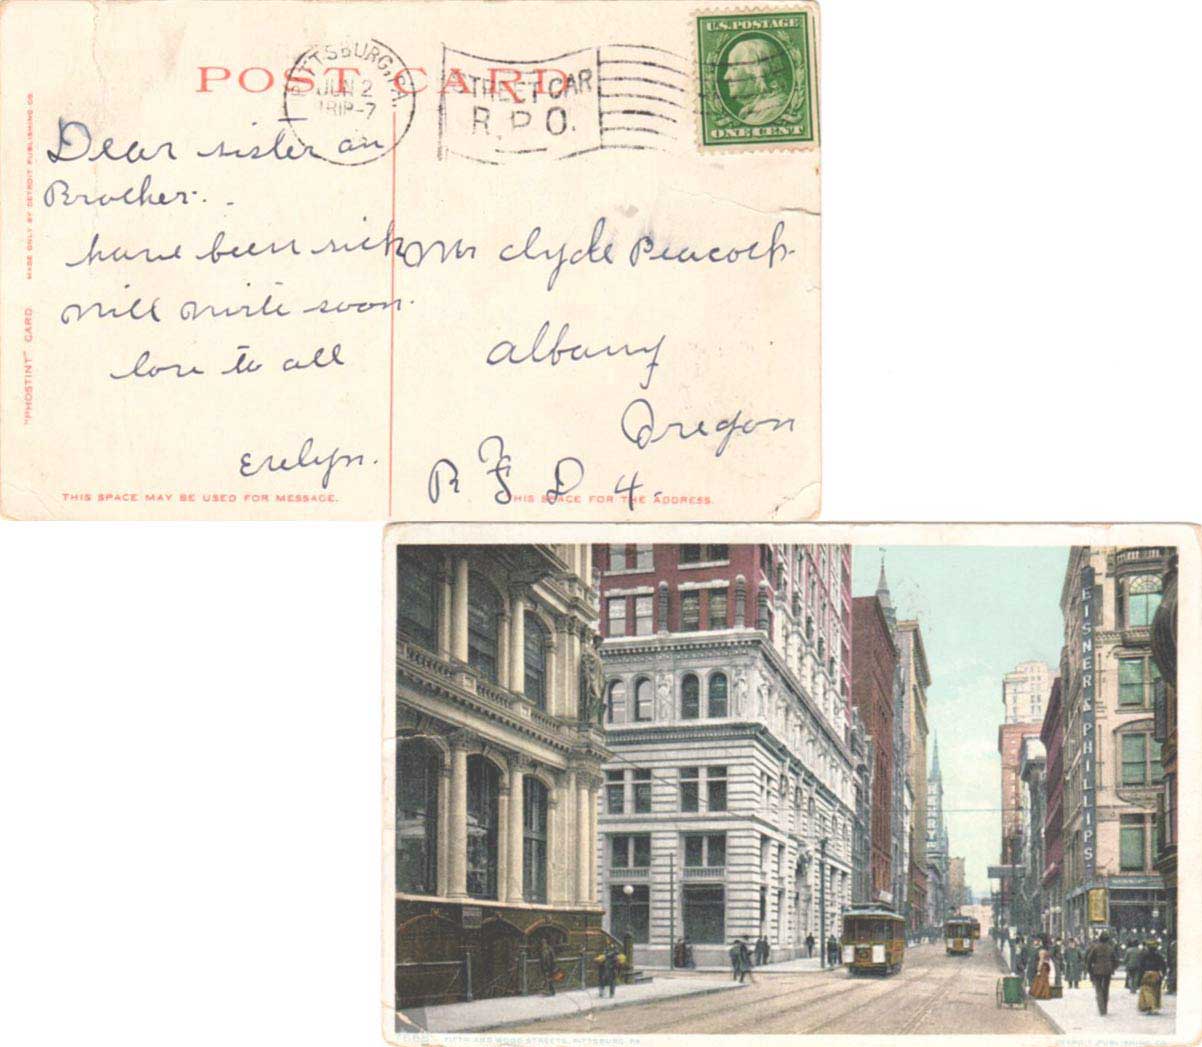 POST CARD
PITTSBURG, PA.
JUN 2
TRIP-7
STREET CAR
R.P.O.
U.S. POSTAGE
ONE CENT
"PHOSTINT" CARD
MADE ONLY BY DETROIT PUBLISHING CO.
Dear sister an
Brother.
have been sick
will write soon.
love to all
Evelyn.
THIS SPACE MAY BE USED FOR MESSAGE.
Mr Clyde Peacock
Albany
Oregon
R F D 4.
THIS SPACE FOR THE ADDRESS.
EISNER & PHILLIPS
FIFTH AND WOOD STREETS, PITTSBURG, PA.
DETROIT PUBLISHING CO.